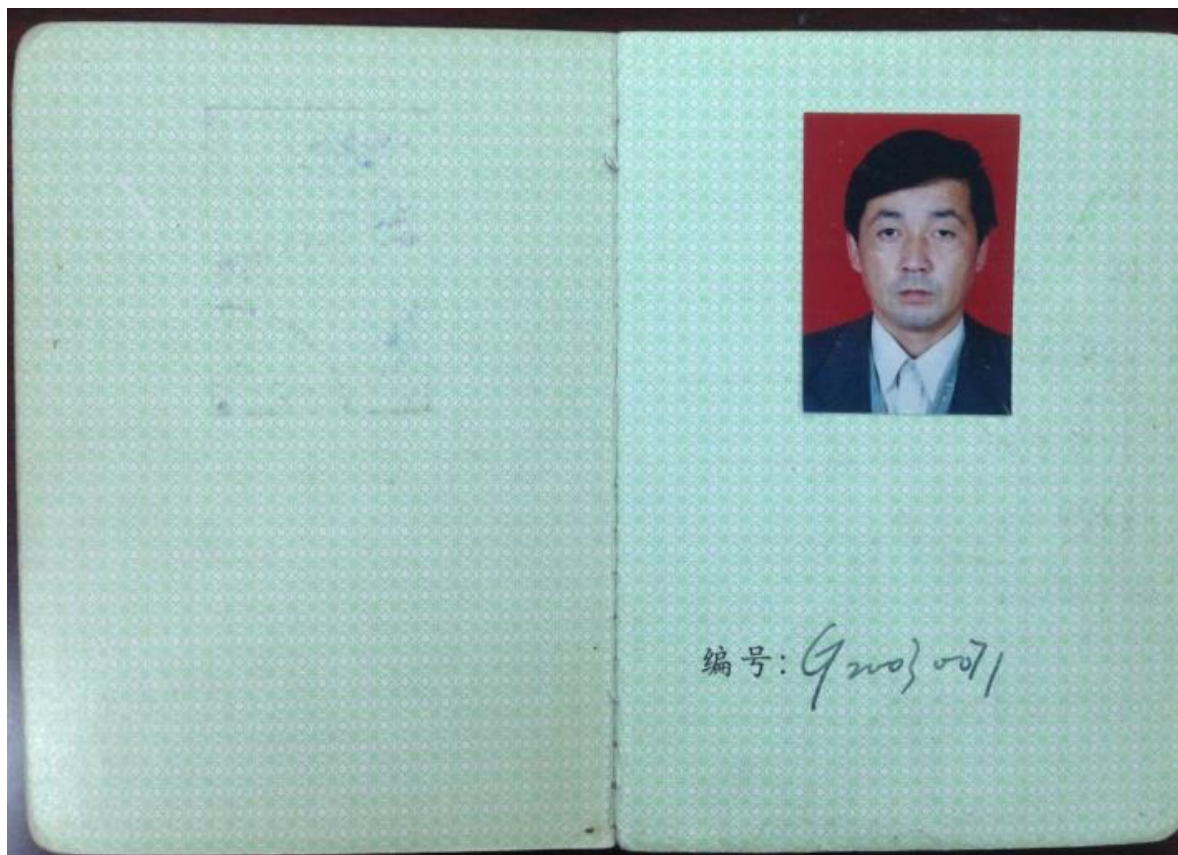 编号：G20030071